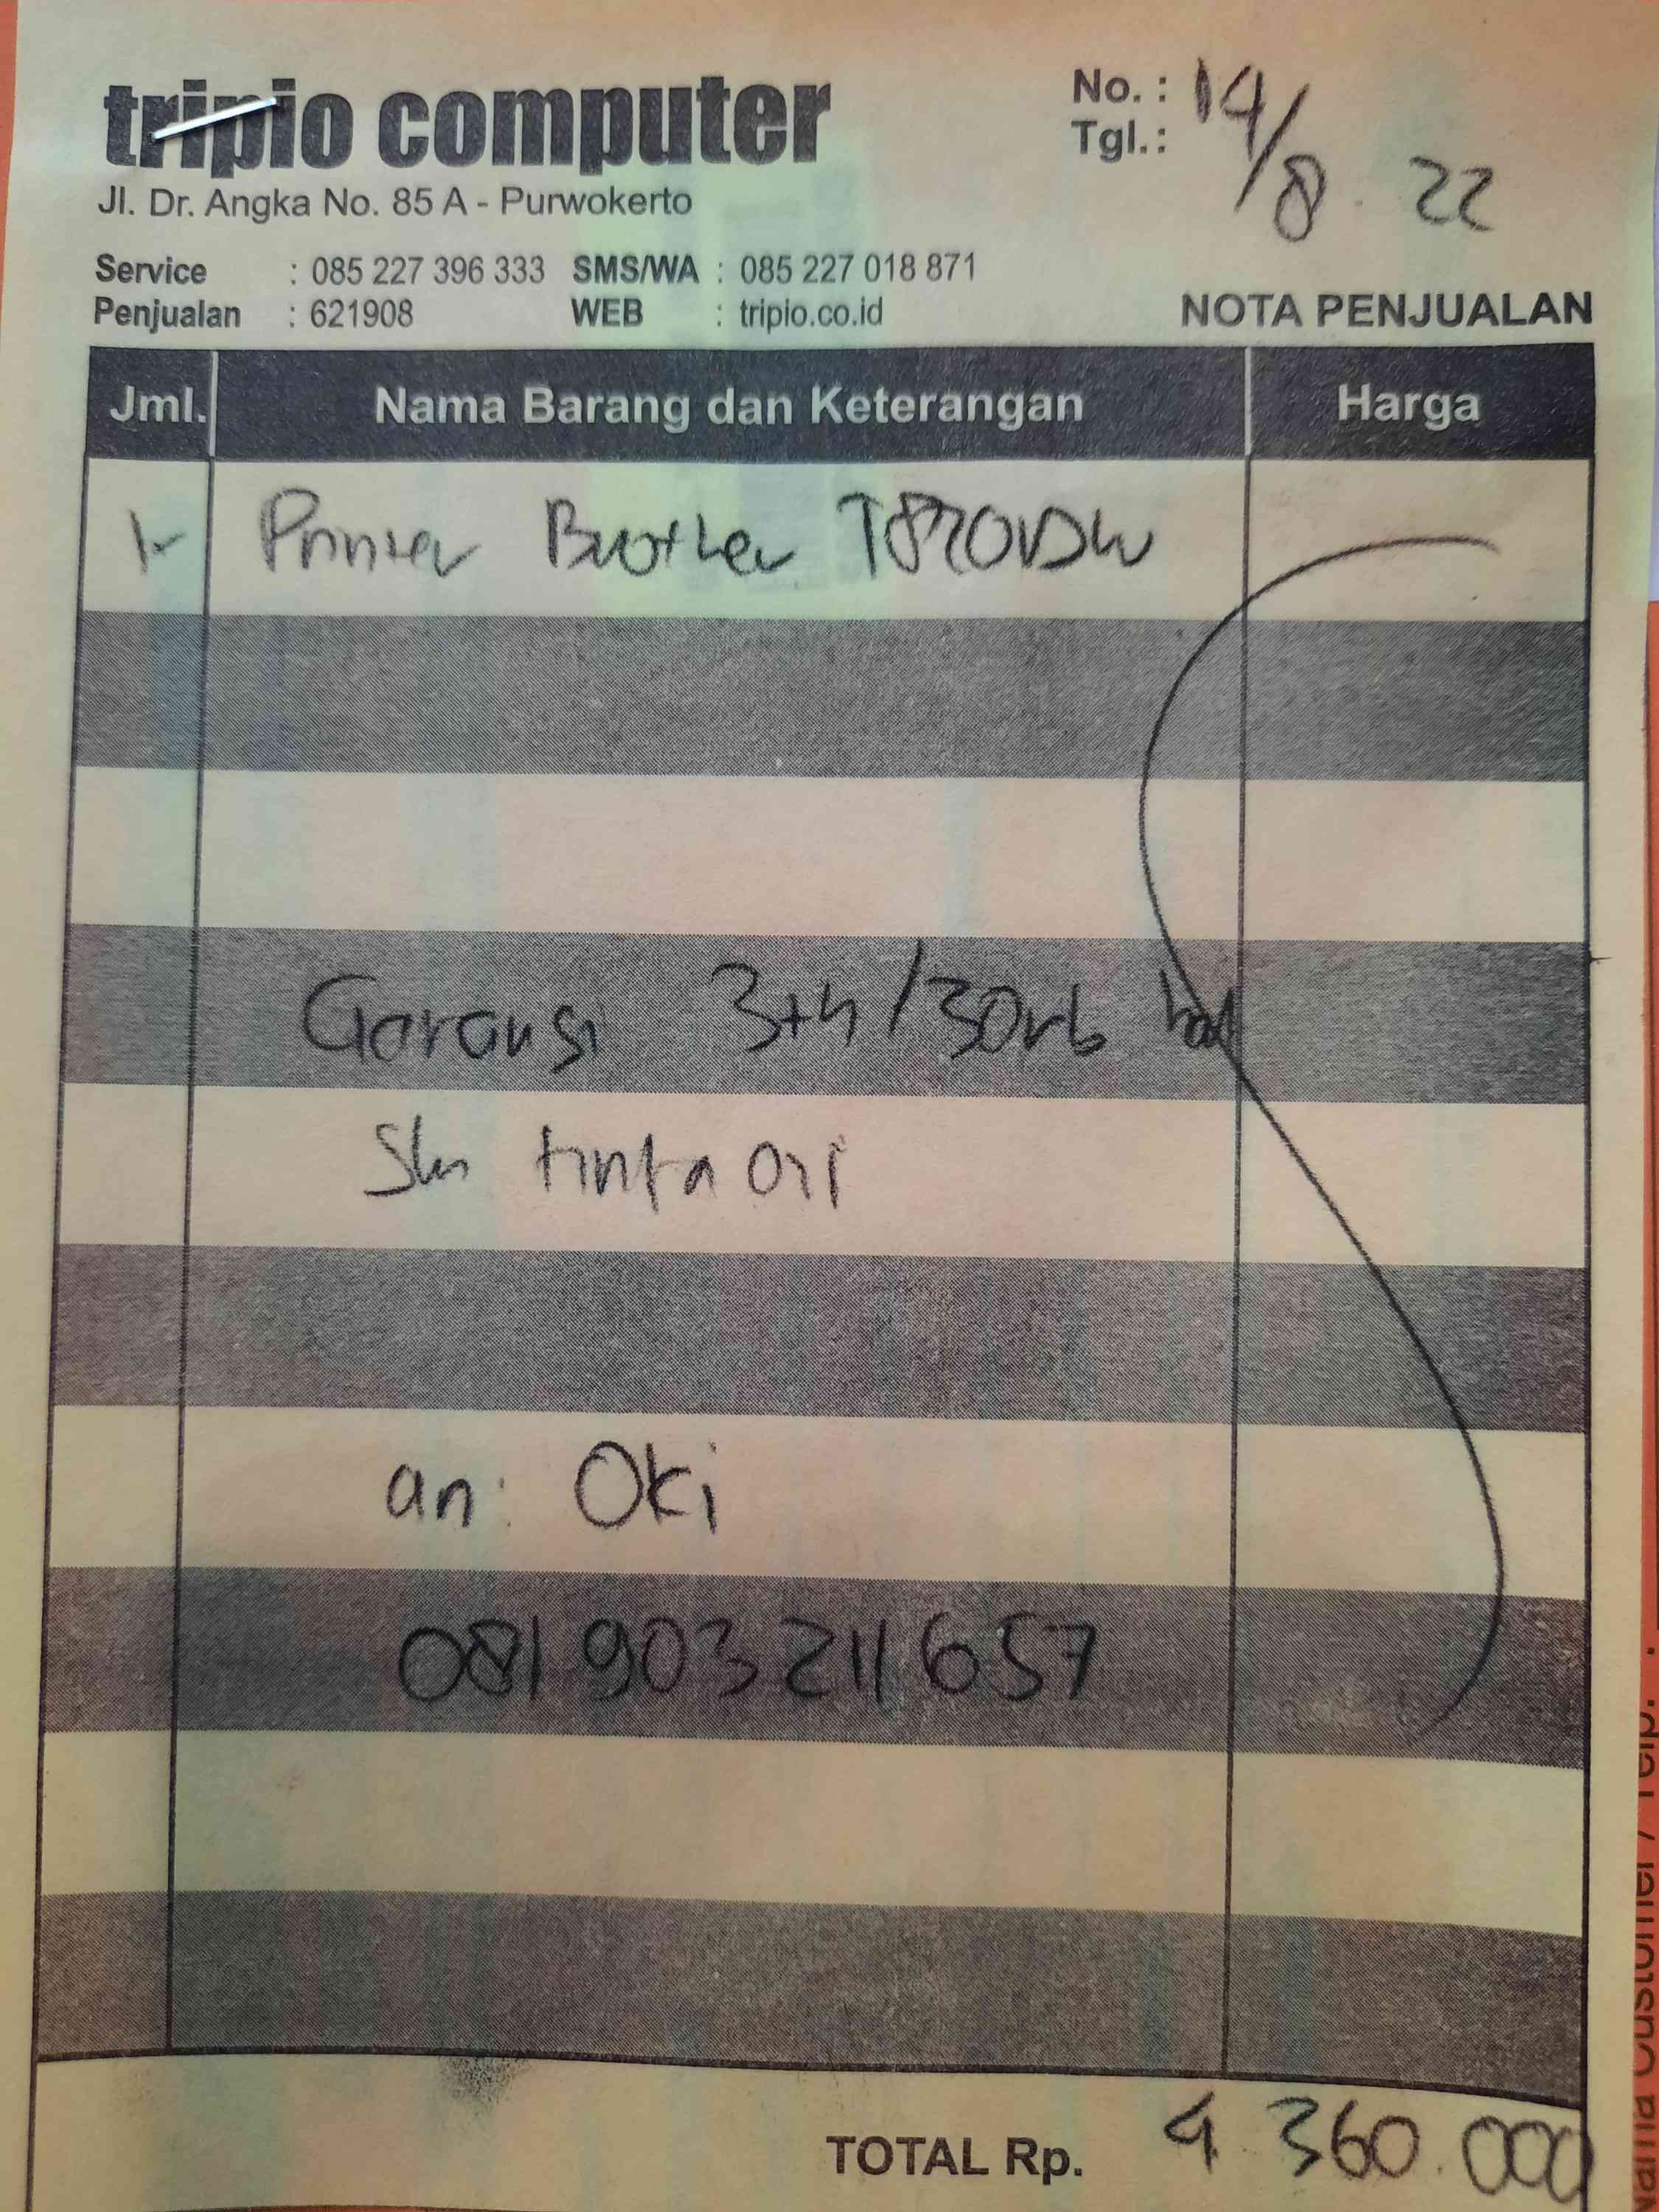 tripio computer
Jl. Dr. Angka No. 85 A - Purwokerto
No. :
Tgl. : 14/8 22
Service : 085 227 396 333 SMS/WA : 085 227 018 871
Penjualan : 621908 WEB : tripio.co.id
NOTA PENJUALAN
Jml. Nama Barang dan Keterangan Harga
1 Printer Brother T820DW
Garansi 3th/30rb hal
tinta ori
an: Oki
081903211657
TOTAL Rp. 4.360.000
Nama Customer / Telp. :